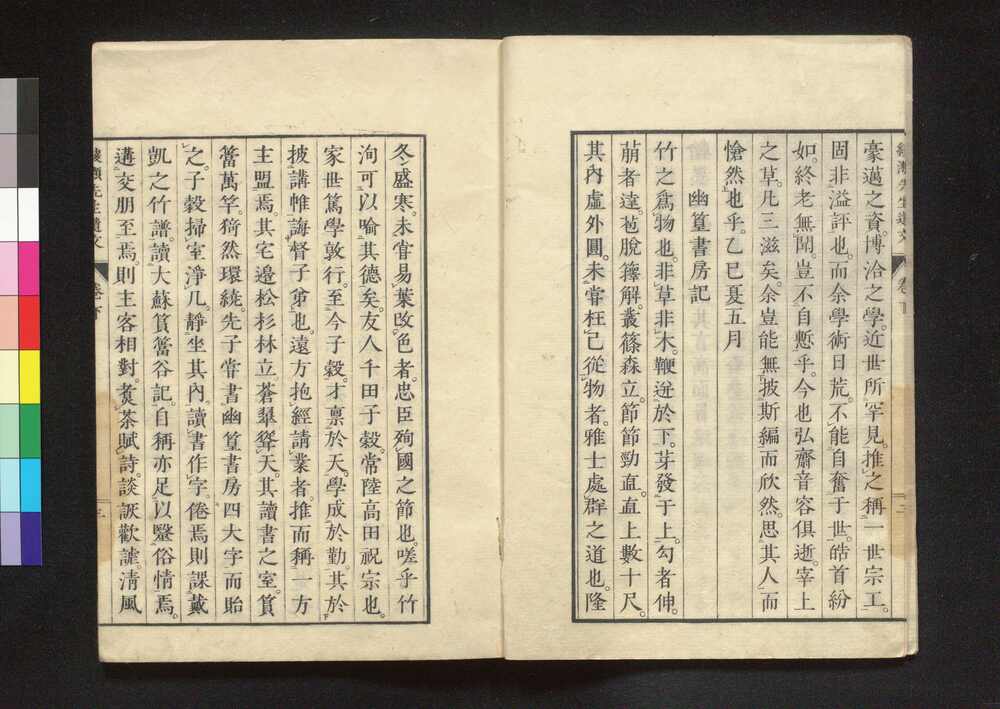 豪邁之資。博洽之學。近世所罕見。推之稱一世宗工。
固非溢評也。而余學術日荒。不能自奮于世。皓首紛
如。終老無聞。豈不自慙乎。今也弘齋音容俱逝。宰上
之草。凡三滋矣。余豈能無披斯編而欣然。思其人而
愴然也乎。乙巳夏五月
幽篁書房記
竹之爲物也。非草非木。鞭迸於下。芽發于上。勾者伸。
萠者達。苞脫籜解。叢篠森立。節節勁直。直上數十尺。
其内虛外圓。未嘗枉己從物者。雅士處群之道也。隆
卷下
二
冬盛寒。未甞易葉改色者。忠臣殉國之節也。嗟乎竹
洵可以喻其德矣。友人千田子穀。常陸高田祝宗也。
家世篤學敦行。至今子穀。才禀於天。學成於勤。其於
披講帷誨督子弟也。遠方抱經請業者。推而稱一方
主盟焉。其宅邊松杉林立。蒼翠聳天。其讀書之室。篔
簹萬竿。猗然環繞。先子甞書幽篁書房四大字而貽
之。子穀掃室淨几。靜坐其内。讀書作字。倦焉則課戴
凱之竹譜。讀大蘇篔簹谷記。自稱亦足以鑿俗情焉。
遘交朋至焉。則主客相對。煑茶賦詩。談詼歡謔。淸風
先生遺文
卷下
三